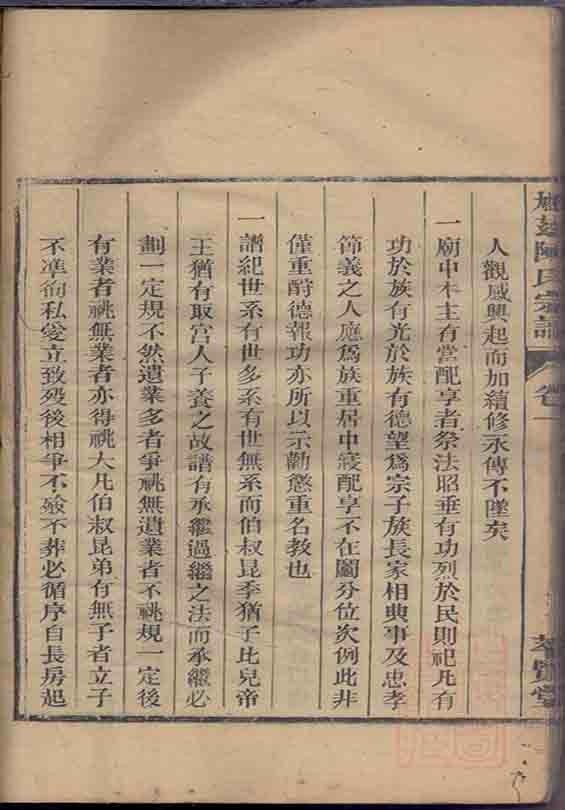 陳氏宗譜 卷一
人觀感興起而加續修永傳不墜矣
一廟中木主有當配享者祭法昭垂有功烈於民則祀凡有
功於族有光於族有德望爲宗子族長家相典事及忠孝
節義之人應爲族重居中寢配享不在闔分位次例此非
僅重酧德報功亦所以示勸懲重名教也
一譜紀世系有世多系有世無系而伯叔昆季猶子比兒帝
王猶有取宮人子養之故譜有承繼過繼之法而承繼必
劃一定規不然遺業多者爭祧無遺業者不祧規一定後
有業者祧無業者亦得祧大凡伯叔昆弟有無子者立子
不準徇私愛立致殁後相爭不殮不葬必循序自長房起